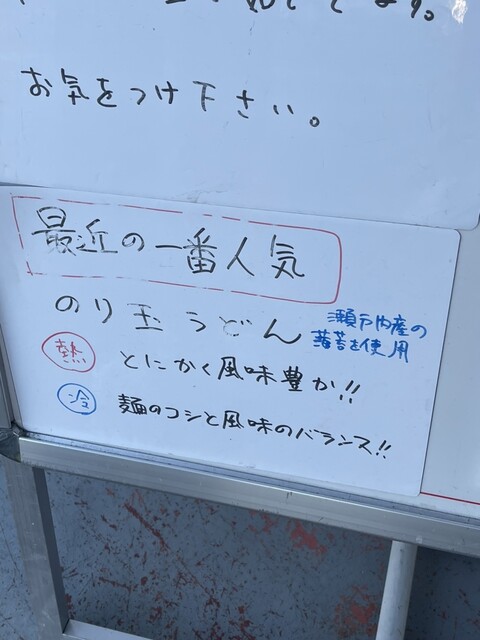 お気をつけ下さい。
最近の一番人気
のり玉うどん
瀬戸内産の
海苔を使用
熱 とにかく風味豊か!!
冷 麺のコシと風味のバランス!!